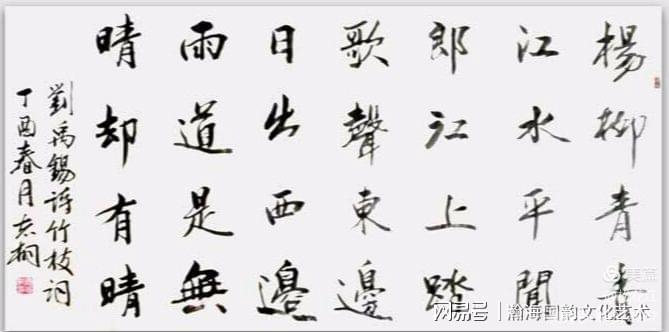 楊柳青青
江水平聞
郎江上踏
歌聲東邊
日出西邊
雨道是無
晴却有晴
劉禹錫诗竹枝词
丁酉春月
美篇
网易号 | 瀚海国韵文化艺术